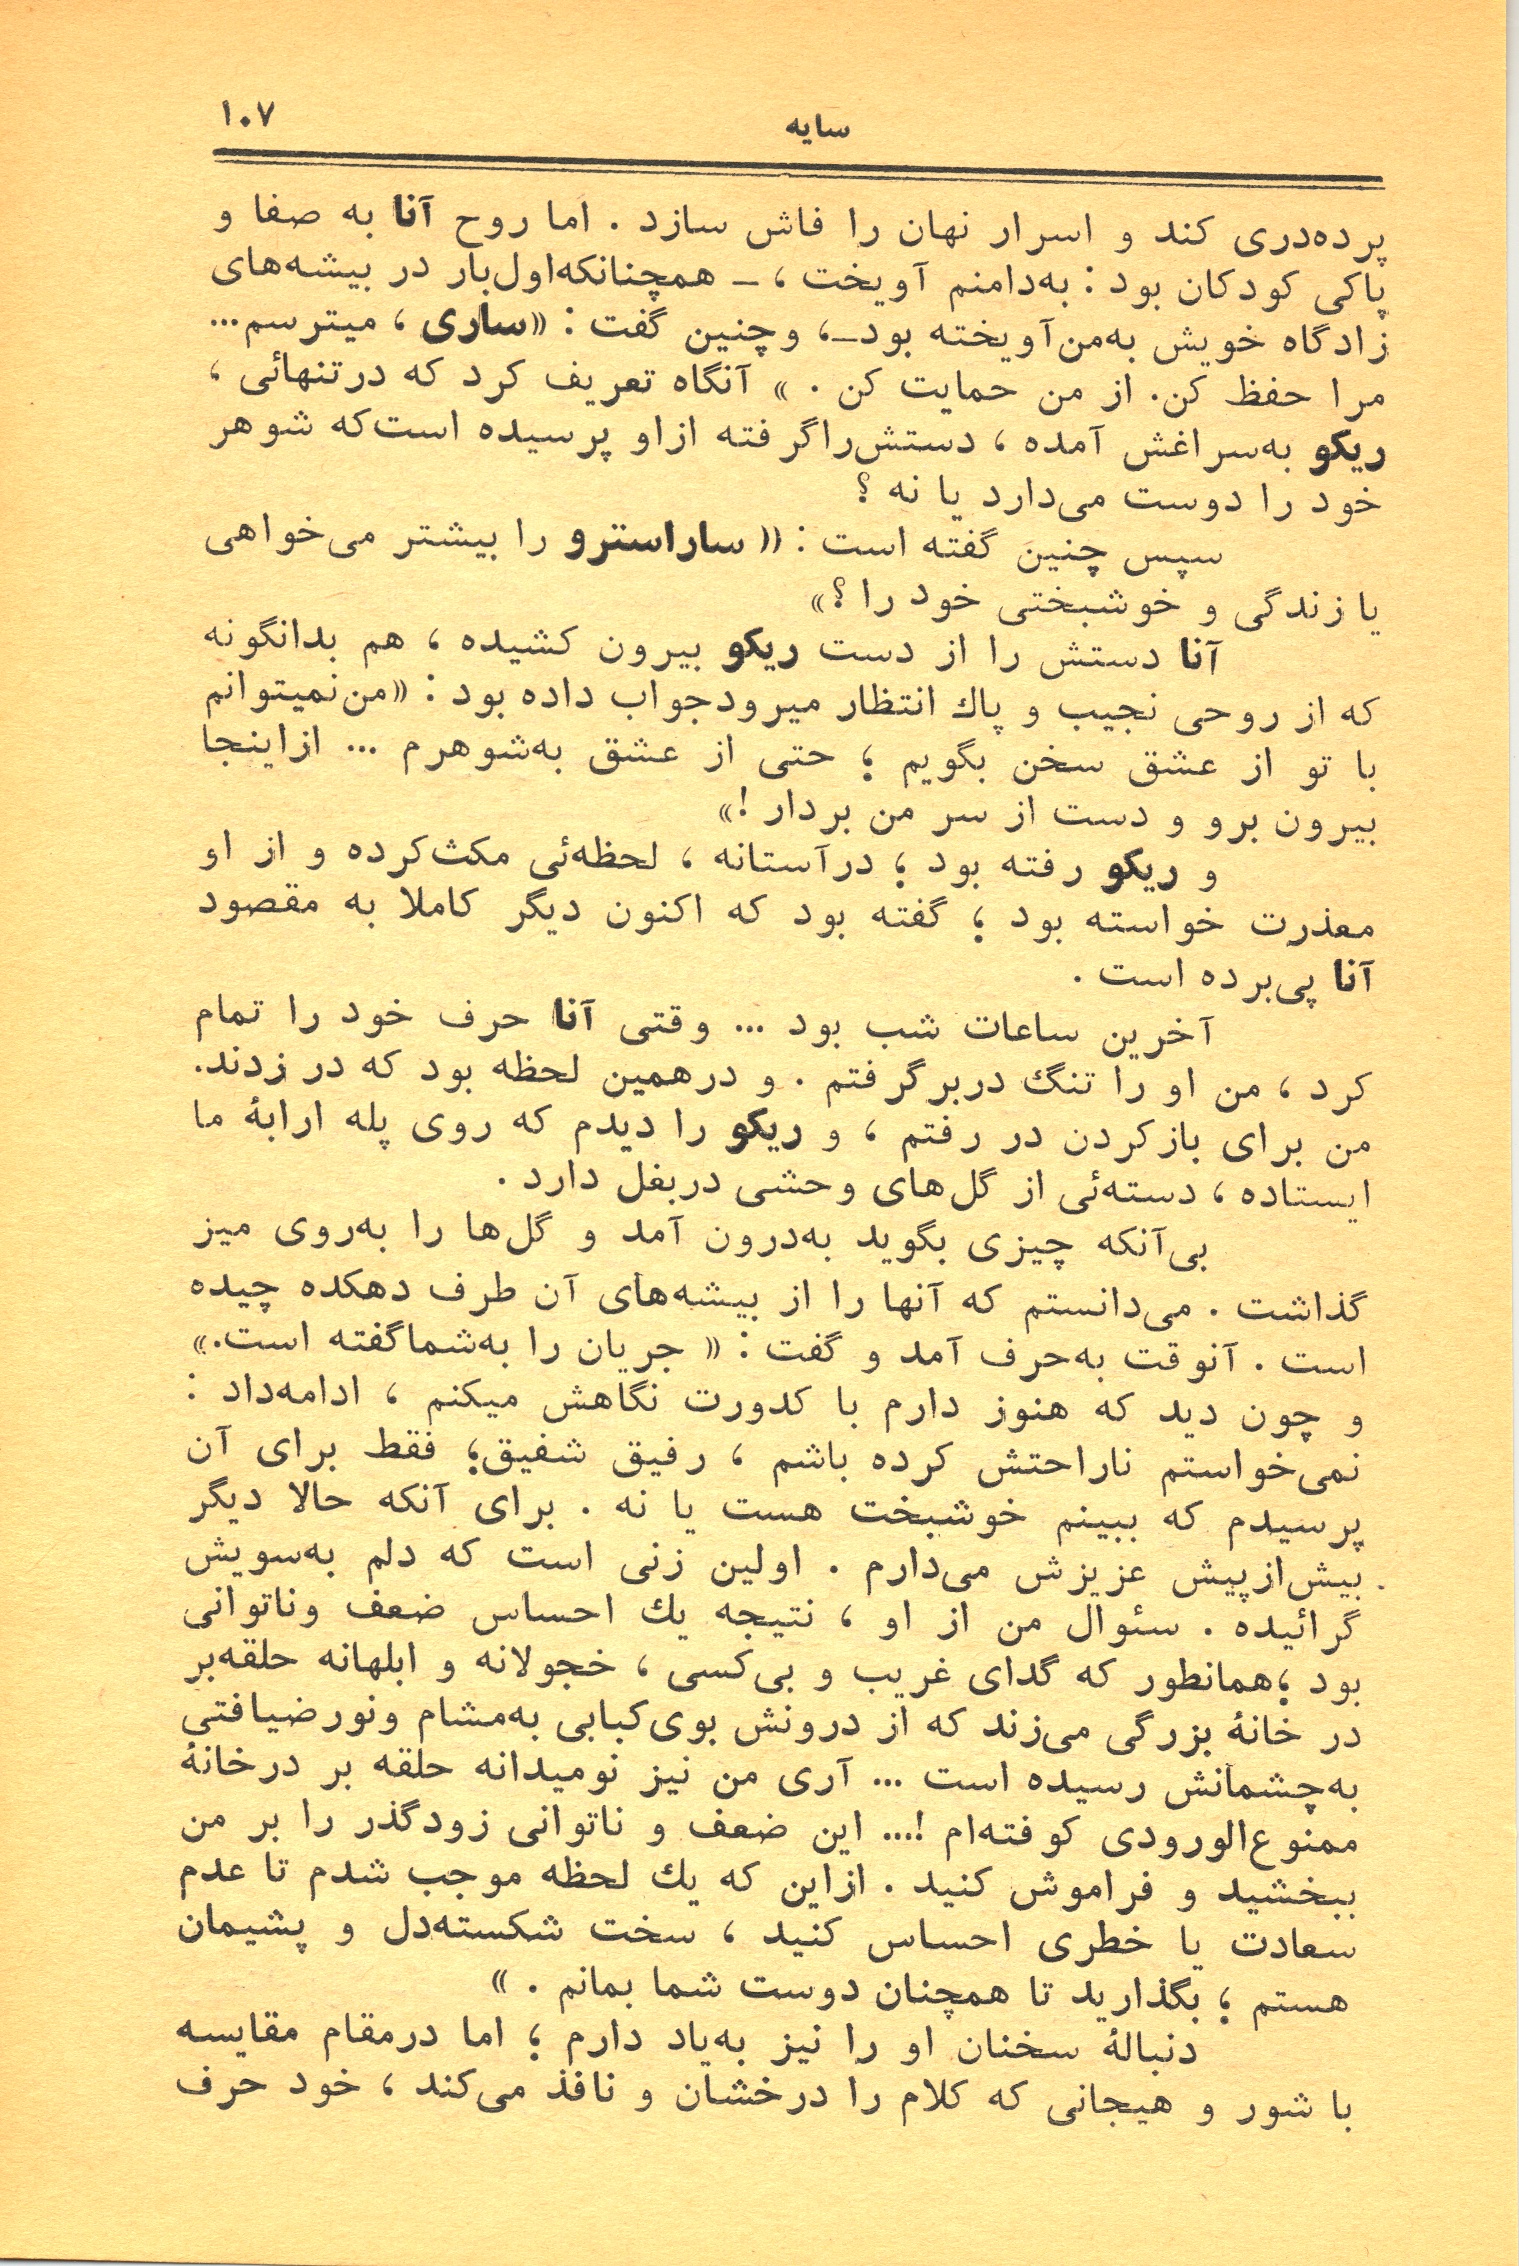 سایه
۱۰۷
پرده‌دری کند و اسرار نهان را فاش سازد . اما روح آنا به صفا و
پاکی کودکان بود : به‌دامنم آویخت ، ـ همچنانکه‌اول‌بار در بیشه‌های
زادگاه خویش به‌من‌آویخته بود ـ، وچنین گفت : «ساری ، میترسم...
مرا حفظ کن. از من حمایت کن . » آنگاه تعریف کرد که درتنهائی ،
ریکو به‌سراغش آمده ، دستش‌راگرفته ازاو پرسیده است‌که شوهر
خود را دوست می‌دارد یا نه ؟
سپس چنین گفته است : « ساراسترو را بیشتر می‌خواهی
یا زندگی و خوشبختی خود را ؟»
آنا دستش را از دست ریکو بیرون کشیده ، هم بدانگونه
که از روحی نجیب و پاك انتظار میرودجواب داده بود : «من‌نمیتوانم
با تو از عشق سخن بگویم ؛ حتی از عشق به‌شوهرم ... ازاینجا
بیرون برو و دست از سر من بردار !»
و ریکو رفته بود ؛ درآستانه ، لحظه‌ئی مکث‌کرده و از او
معذرت خواسته بود ؛ گفته بود که اکنون دیگر کاملا به مقصود
آنا پی‌برده است .
آخرین ساعات شب بود ... وقتی آنا حرف خود را تمام
کرد ، من او را تنگ دربرگرفتم . و درهمین لحظه بود که در زدند.
من برای بازکردن در رفتم ، و ریکو را دیدم که روی پله ارابهٔ ما
ایستاده ، دسته‌ئی از گل‌های وحشی دربغل دارد .
بی‌آنکه چیزی بگوید به‌درون آمد و گل‌ها را به‌روی میز
گذاشت . می‌دانستم که آنها را از بیشه‌های آن طرف دهکده چیده
است . آنوقت به‌حرف آمد و گفت : « جریان را به‌شماگفته است.»
و چون دید که هنوز دارم با کدورت نگاهش میکنم ، ادامه‌داد :
نمی‌خواستم ناراحتش کرده باشم ، رفیق شفیق؛ فقط برای آن
پرسیدم که ببینم خوشبخت هست یا نه . برای آنکه حالا دیگر
بیش‌ازپیش عزیزش می‌دارم . اولین زنی است که دلم به‌سویش
گرائیده . سئوال من از او ، نتیجه یك احساس ضعف وناتوانی
بود ؛همانطور که گدای غریب و بی‌کسی ، خجولانه و ابلهانه حلقه‌بر
در خانهٔ بزرگی می‌زند که از درونش بوی‌کبابی به‌مشام ونورضیافتی
به‌چشمانش رسیده است ... آری من نیز نومیدانه حلقه بر درخانهٔ
ممنوع‌الورودی کوفته‌ام !... این ضعف و ناتوانی زودگذر را بر من
ببخشید و فراموش کنید . ازاین که یك لحظه موجب شدم تا عدم
سعادت یا خطری احساس کنید ، سخت شکسته‌دل و پشیمان
هستم ؛ بگذارید تا همچنان دوست شما بمانم . »
دنبالهٔ سخنان او را نیز به‌یاد دارم ؛ اما درمقام مقایسه
با شور و هیجانی که کلام را درخشان و نافذ می‌کند ، خود حرف